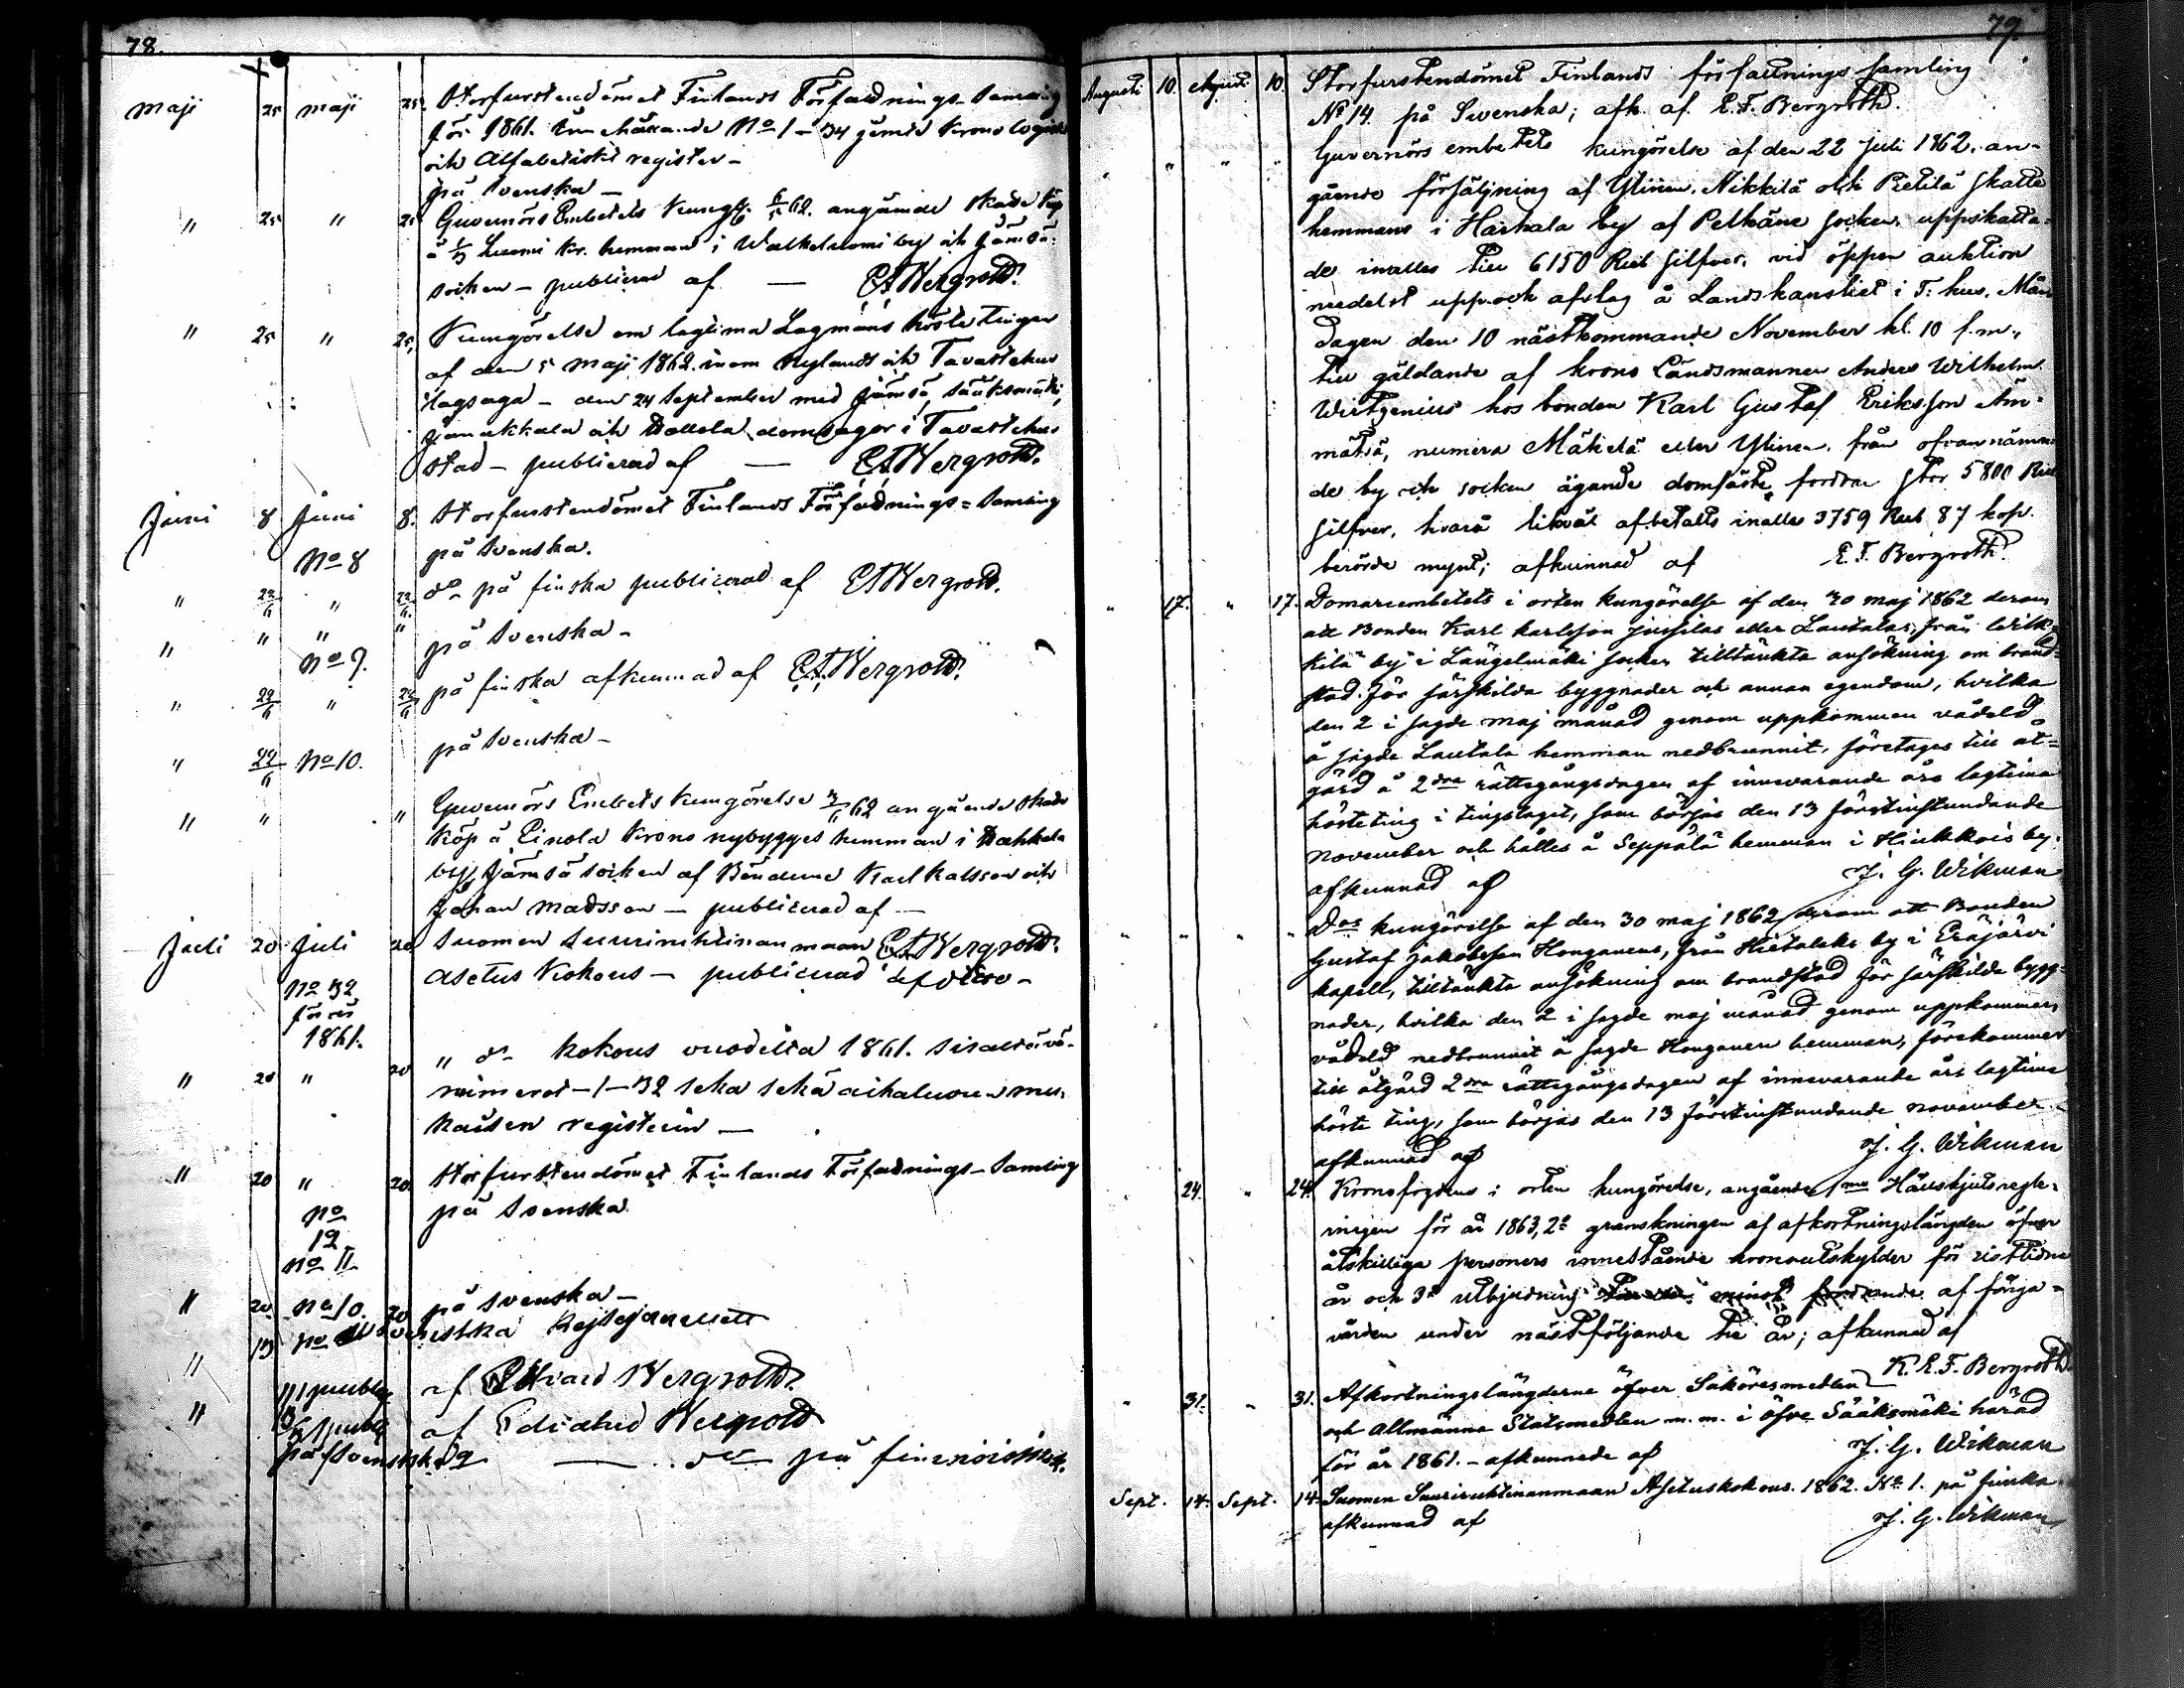 78.
maji 25 maji 25. Storfurstendömet Finlands Författnings-Samling
för 1861. innehållande No 1-34 jämte Kronologiskt
och Alfabetiskt register-
på svenska-
" 25 " 25 Guvernörs Embetets Kungg. 62. angående skatte köp
å Luomi Kr. hemman i by och Jämsä
socken - publicerad af - E.F. Bergroth.
" 25 " 25. Kungörelse om lagtima Lagmans höste tingen
af den 5 maji 1862. inom Nylands och Tavastehus
lagsaga - den 24 September med Jämsä, Sääksmäki,
Janakkala och Hollola domsagor i Tavastehus
stad - publicerad af - E.F. Bergroth.
Juni 8 Juni 8. Storfurstendömet Finlands Författnings-Samling
No 8 på svenska.
" 22/6 " 22/6 do på finska publicerad af E.F. Bergroth.
" " " " på svenska-
No 9.
" 22/6 " 22/6 på finska afkunnad af E.F. Bergroth.
" 22/6 No 10. på svenska-
" " " Guvernörs Embets Kungörelse 62 angående skatte
köp å Einola Krono nybygges hemman i
by Jämsä socken af Bönderne Karl Kalsson och
Johan Madsson - publicerad af -
Juli 20 Juli 20 Suomen Suuriruhtinan maan E.F. Bergroth.
No 32 asetus Kokous - publicerad af
för år
1861.
" 20 " 20 " do kokous vuodelta 1861. sisältävä
nimerot - 1-32 seka sekä aikaluvun mu-
kaisen registerin -
" 20 " 20. Storfurstendömet Finlands Författnings-Samling
No på Svenska
12
No 11
" 20 No 10. 20 på svenska-
" 13 No
" publ af Edvard Bergroth.
" publ af Bergroth
på svenska do på
79.
Augusti 10. Augusti 10. Storfurstendömet Finlands författnings samling
No 14. på Swenska; afk. af. E. F. Bergroth.
" " " " Guvernörs embetets kungörelse af den 22 juli 1862. an-
gående försäljning af Ylinen, Nikkilä och Pietilä skatte
hemmans i Harhala by af Pelkäne socken, uppskatta-
de inalles till 6150 Rub silfver, vid öppen auktion
medelst upp- och afslag å Landskansliet i T: hus, Mån-
dagen den 10 nästkommande November kl. 10 f.m.,
till gäldande af krono Länsmannen Anders Wilhelm
Wirtzenius hos bonden Karl Gustaf Eriksson Äm-
mätsä, numera Mäkelä eller Ylinen, från ofvannämn-
de by och socken ägande domfäste fordran stor 5800 Rub
silfver, hvarå likväl afbetalts inalles 3759 Rub 87 kop.
berörde mynt; afkunnad af E. F. Bergroth.
" 17. " 17. Domareembetets i orten kungörelse af den 30 maj 1862 derom
att Bonden Karl Karlsson Jussilas eller Lautalas, från
kilä by i Längelmäki socken tilltänkta ansökning om brand-
stod för särskilda byggnader och annan egendom, hvilka
den 2 i sagde maj månad genom uppkommen vådeld
å sagde Lautala hemman nedbrunnit, företages till åt-
gärd å 2dra rättegångsdagen af innevarande års lagtima
hösteting i tingslaget, som börjas den 13 förstinstundande
november och hålles å Seppälä hemman i Hinkkois by.
afkunnad af J. G. Wikman
" " " " Dos kungörelse af den 30 maj 1862 derom att Bonden
Gustaf Jakobsson Honganens, från by i Eräjärvi
kapell, tilltänkta ansökning om brandstod för särskilda bygg-
nader, hvilka den 2 i sagde maj månad genom uppkommen
vådeld nedbrunnit å sagde Honganen hemman, förekommer
till åtgärd 2dra rättegångsdagen af innevarande års lagtima
höste ting, som börjas den 13 förstinstundande november-
afkunnad af J. G. Wikman
" 24. " 24. Kronofogdens i orten kungörelse, angående 1mo Hållskjutsregle-
ringen för år 1863, 2o granskningen af afkortningslängden öfver
åtskilliga personers innestående kronoutskylder för sistlidne
år och 3o utbjudning minst fordrande af färja-
vården under nästföljande tre år; afkunnad af
K. E. F. Bergroth.
" 31. " 31. Afkortningslängderne öfver Saköresmedlen
och Allmänna Statsmedlen m. m. i öfre Sääksmäki härad
för år 1861. - afkunnade af J. G. Wikman
Sept. 14. Sept. 14. Suomen Suuriruhtinanmaan Asetuskokous. 1862. No 1. på finska
afkunnad af J. G. Wikman